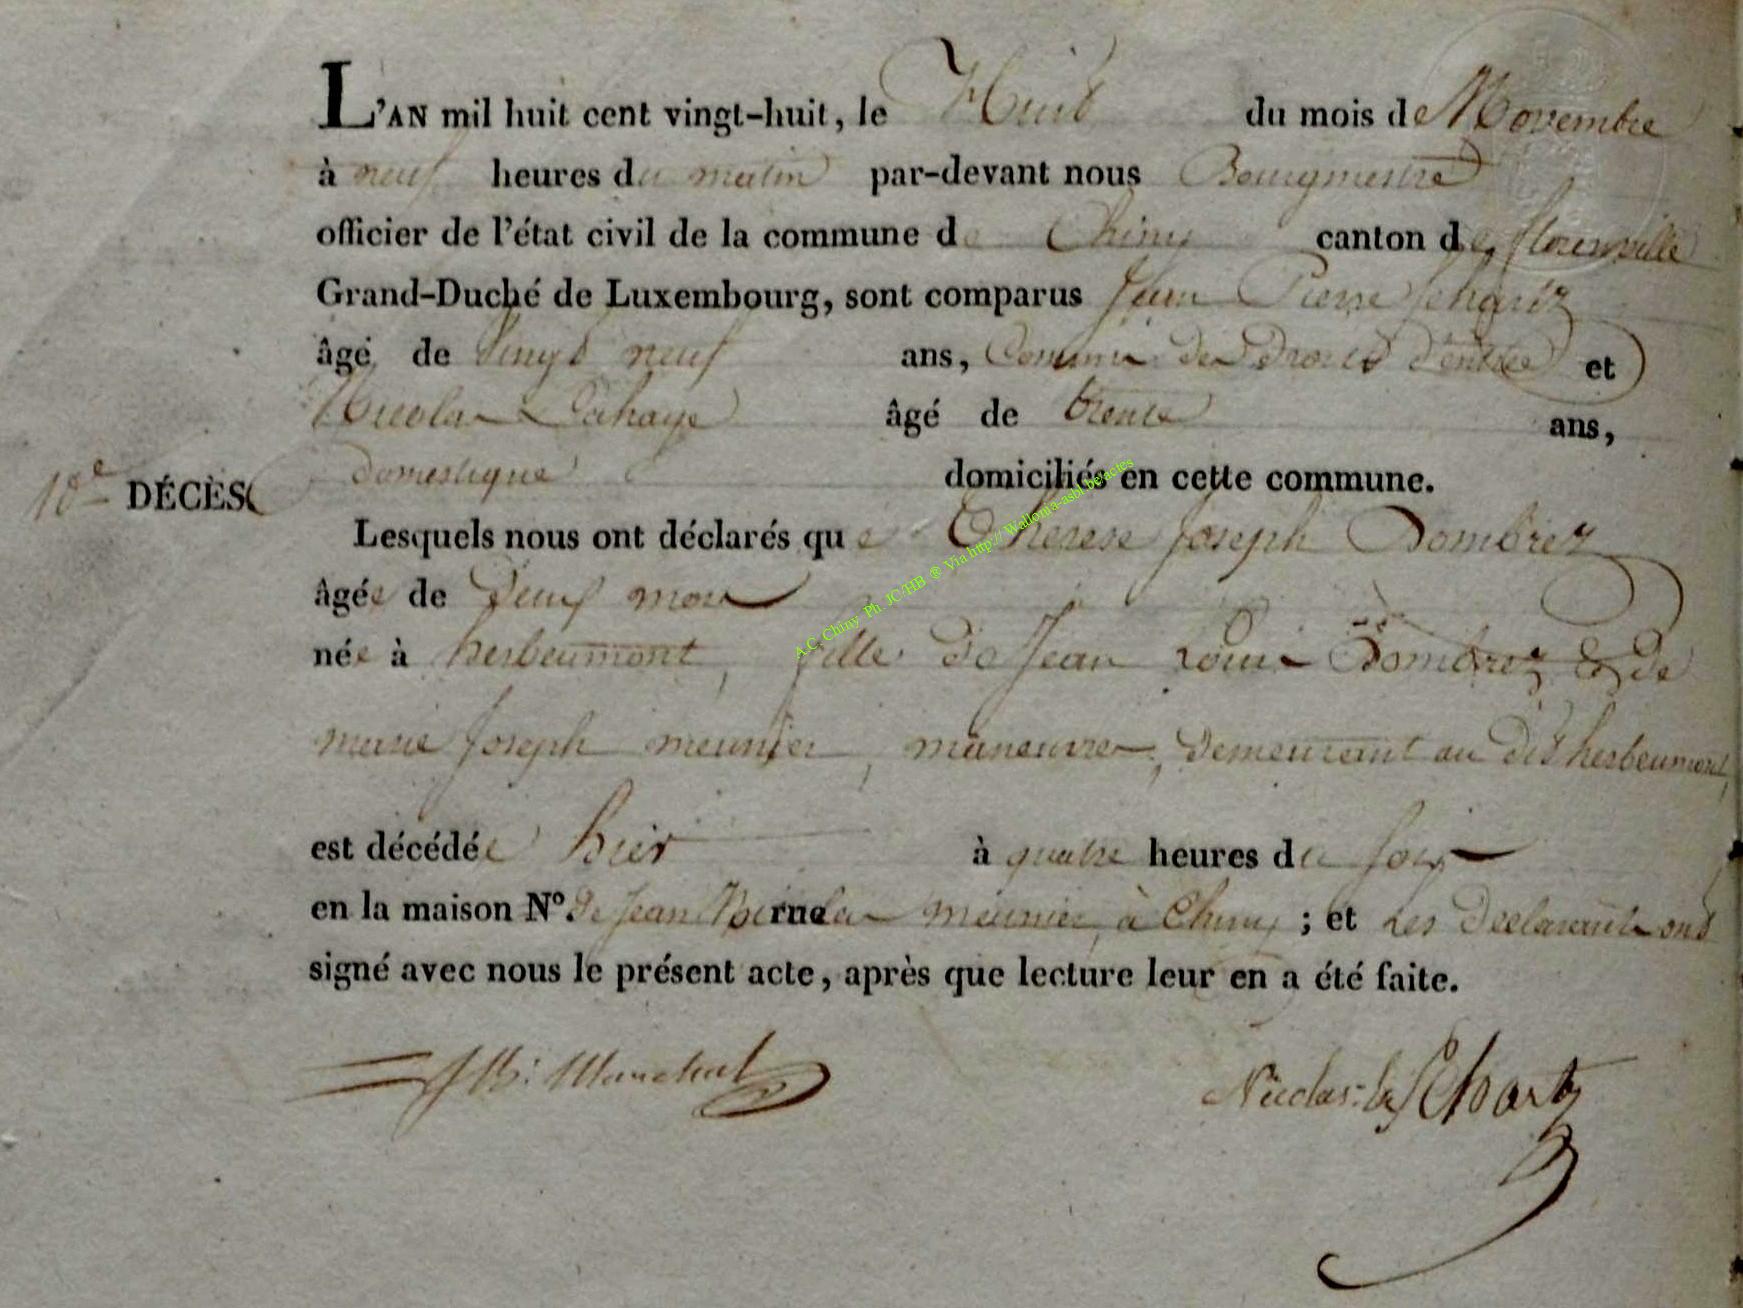 L'AN mil huit cent vingt-huit, le Huit du mois de Novembre
à neuf heures du matin par-devant nous Bourgmestre
officier de l'état civil de la commune de Chiny canton de florenville
Grand-Duché de Luxembourg, sont comparus Jean Pierre Schartz
âgé de Vingt neuf ans, Commis des Droits d'entrée et
Nicolas Lahaye âgé de trente ans,
domestique domiciliés en cette commune.
10e DÉCÈS
Lesquels nous ont déclarés que Therese Joseph Dombrez
âgée de Deux mois
née à herbeumont, fille de Jean Louis Dombrez & de
marie Joseph meunier, maneuvres, demeurant au dit herbeumont,
est décédée hier à quatre heures du soir
en la maison N°. de Jean Nicolas rue meunier, à Chiny ; et les Declarants ont
signé avec nous le présent acte, après que lecture leur en a été faite.
Nicolas Schartz
A.C. Chiny Ph. JC-HB ® Via http://Wallonia-asbl.be/actes